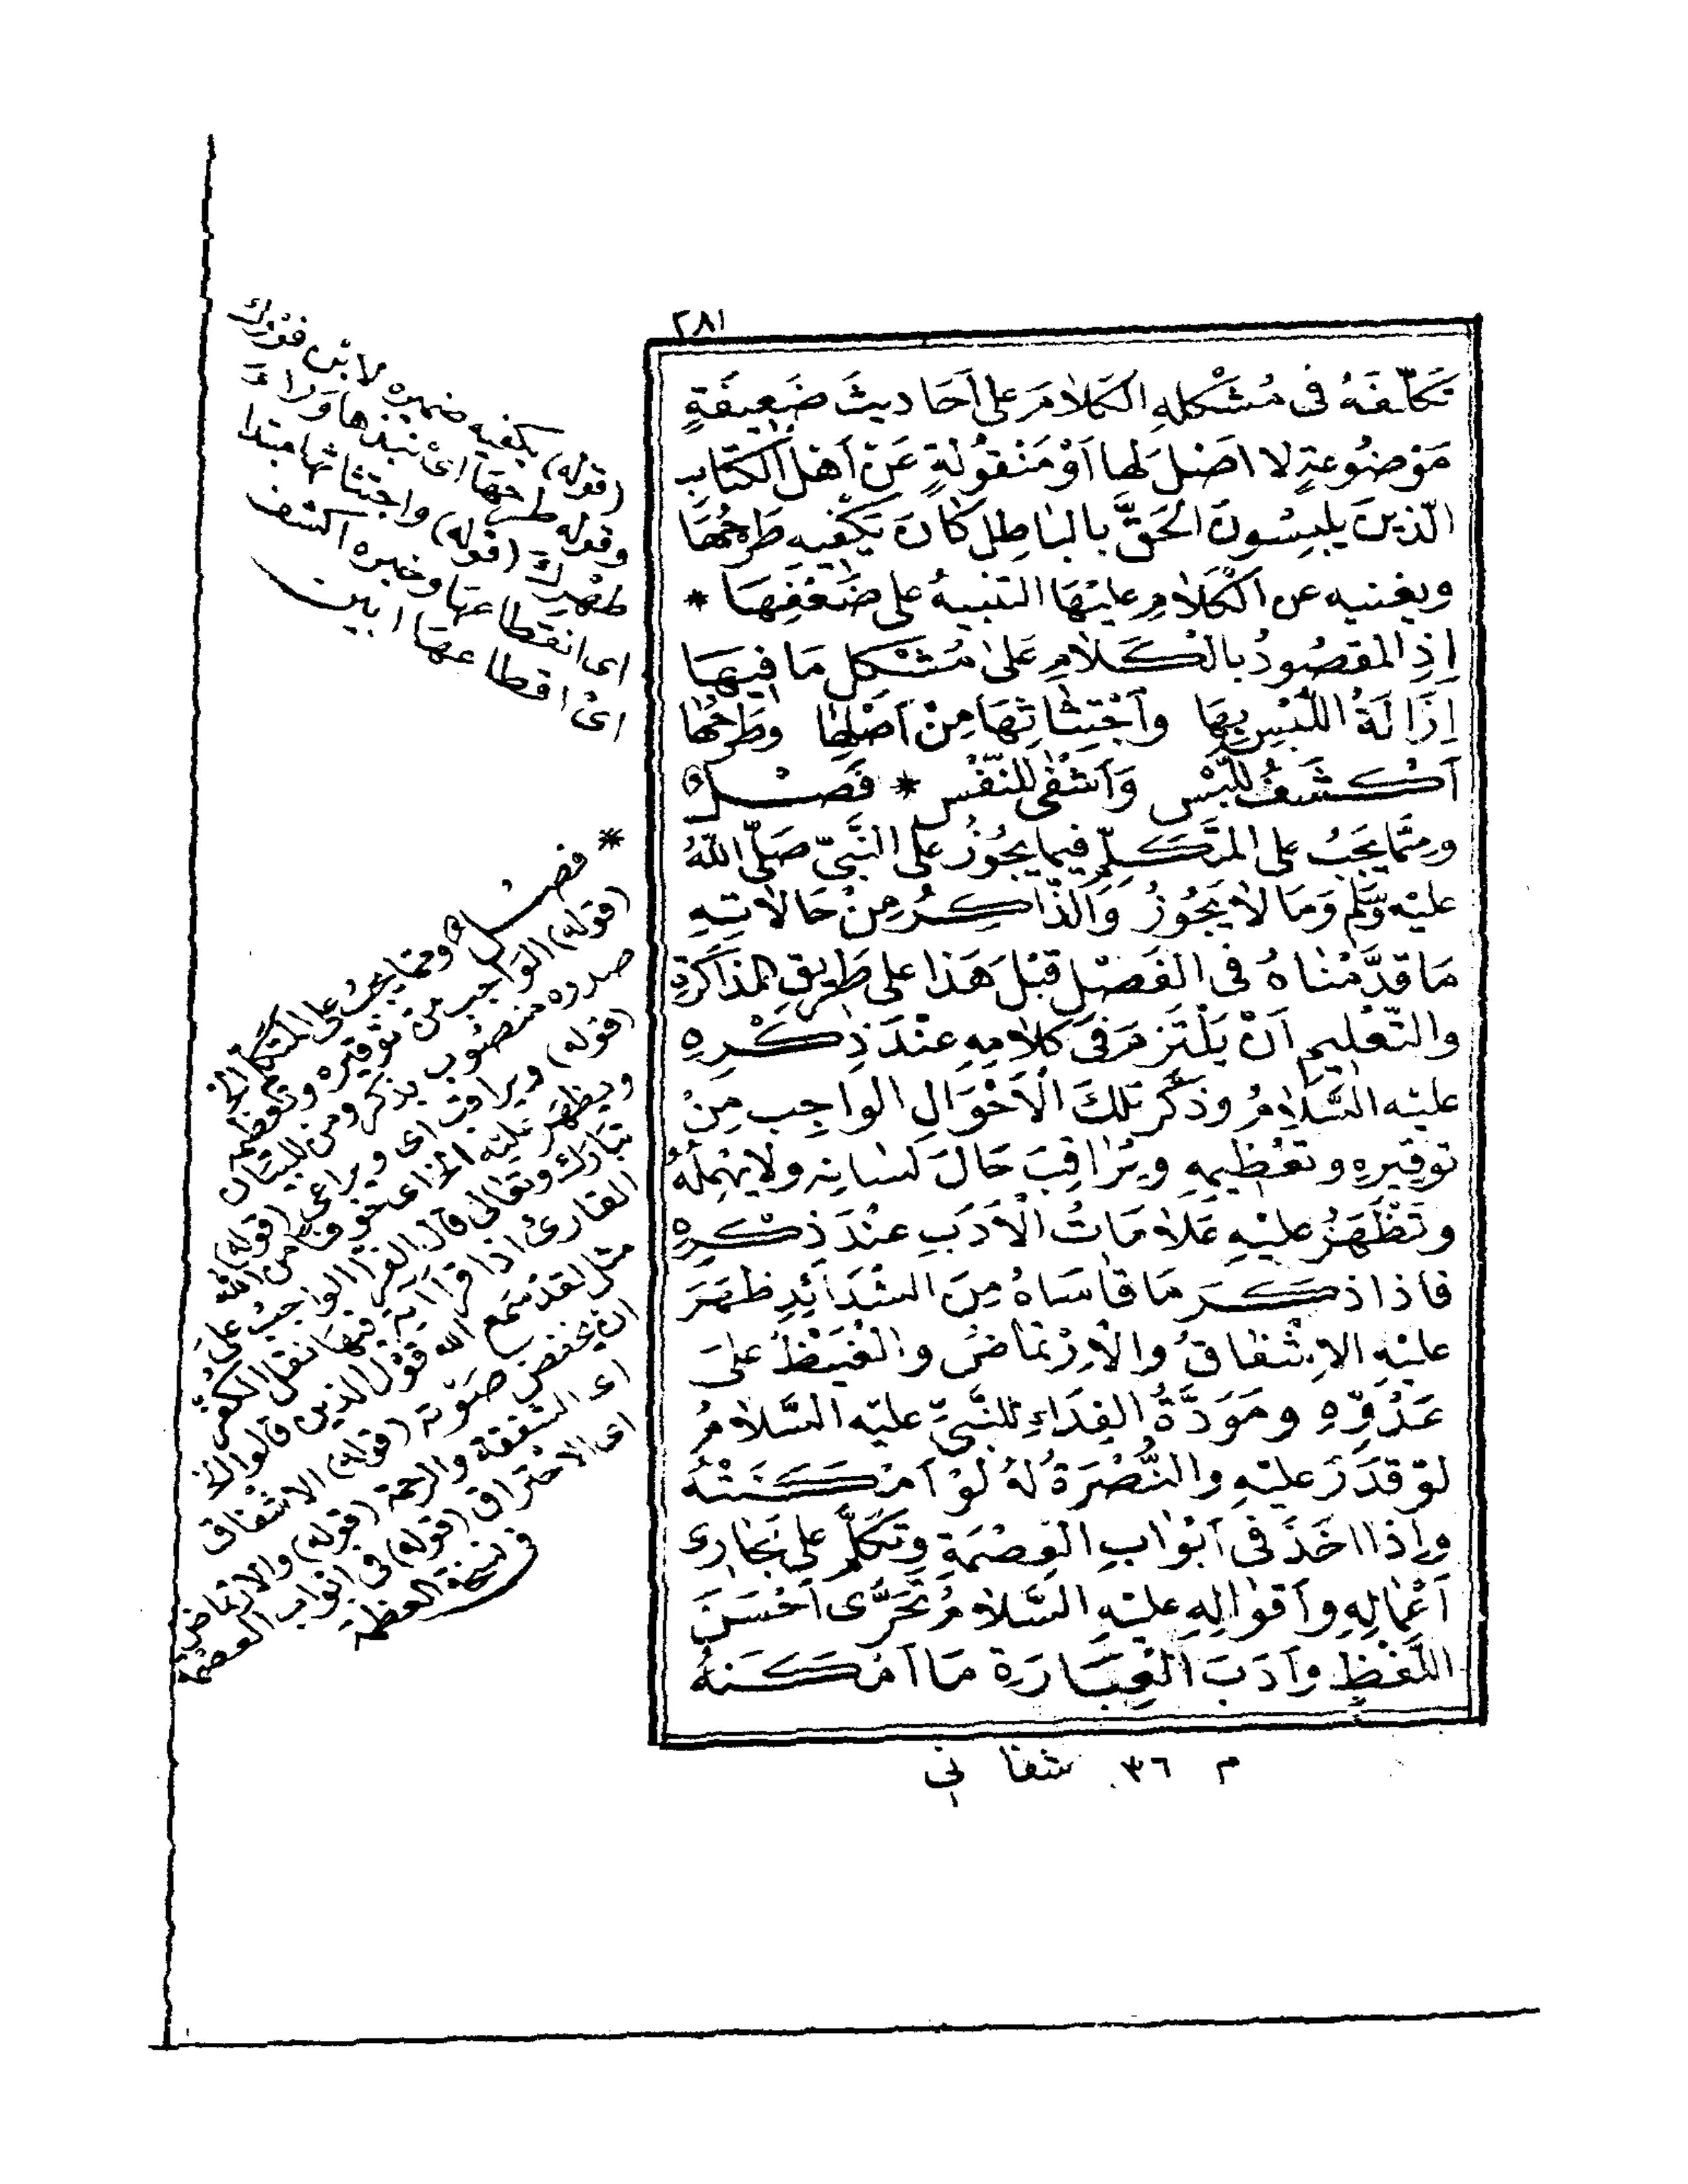 ٢٨١
تَكَلَّفَهُ فى مُشْكَلِهِ الكَلامَ على اَحَاديثَ ضَعِيفَةٍ
مَوْضُوعةٍ لا اَصْلَ لها اَوْ مَنْقُولَةٍ عَنْ اَهْلِ الكتَابِ
الّذِينَ يلبِسُونَ الحَقَّ بالبَاطِلِ كَانَ يَكْفِيه طَرْحُهَا
ويغنيه عن الكَلامِ عليْهَا التنبيهُ على ضَعْفِهَا *
اِذِ المقصُودُ بالكَلَامِ عَلى مُشْكِلِ مَا فِيهَا
اِزَالَةُ اللَّبْسِ بِهَا وَاجْتِثَاثُهَا مِنْ اَصْلِهَا وطَرْحُهَا
اَكْشَفُ لِلَّبْسِ وَاَشْفى للنَّفْسِ * فَصْلٌ
ومِمَّا يَجِبُ على المتَكَلِّمِ فيما يجُوزُ على النَّبىّ صَلَّى اللهُ
عليْه وسَّلم وَمَا لا يَجُوزُ وَالذَّاكِرُ مِنْ حَالاتِهِ
مَا قدَّمْنَاهُ فى الفَصْلِ قبْلَ هَذا على طَرِيقِ المذَاكَرةِ
والتّعْليمِ اَنْ يَلْتَزِمَ فى كَلامِهِ عنْدَ ذِكْرِهِ
عليْه السَّلامُ وذكْرِ تلكَ الاَحْوَالِ الواجِبِ مِنْ
توقِيرِهِ وتعْظِيمِهِ ويُرَاقِبَ حَالَ لسَانِه ولا يُهْمِلَهُ
وتَظْهَرُ عليْهِ عَلامَاتُ الاَدَبِ عنْدَ ذِكْرِهِ
فاذا ذكَرَ مَا قاسَاهُ مِنَ الشّدَائِدِ ظهَرَ
عليْهِ الاِشْفاقُ والاِرْتماضُ والْغَيْظُ علىَ
عَدُوِّهِ ومَوَدَّةُ الفِدَاءِ للنَّبىِّ عليْه السَّلامُ
لوْ قدَرَ عليْهِ والنُّصْرَةُ لهُ لَوْ اَمْكَنَتْهُ
واِذا اخَذَ فى اَبْوَابِ العِصْمَةِ وتَكَلَّم على مَجَارِى
اَعْمالِهِ واَقوَالِهِ عليْهِ السَّلامُ تَحَرَّى اَحْسَنَ
اللّفْظِ واَدَبَ العِبَارَةِ مَا اَمْكَنهُ
م ٣٦ شفا نى
(قوله) يكفيه ضميره لابْنِ فُوْرَك
وقوله طرحهَا اىْ نبذها وَرَاءَ
ظهْرِكَ (قوله) واجتثاثها مبتدا
اى انقطاعهَا وخبره اكشف
اىْ اقطاعهَا ابين
* فصلٌ ومّما يجبُ على المتكلّم الخ
(قوله) الوَاجِبِ منْ توقيره وتعظيمه
صدره منصُوب بذكر ومن للبيَان
(قوله) ويراقبَ اى ويراعىَ (قوله)
ويظهرَ عليْه الخ اى خوفا منَ الله
تبَارك وتعَالى قال القرا الواجبُ علىَ
القارئ اذا قرا آية فيهَا نقل الكفْر
مثل لقدْ سَمع الله قوْل الذين قالوا الخ
ان يخفضَ صَوْته (قوله) الاشفاق
اى الشفقة والرحمة (قوله) والارتماض
اى الاحْتراق (قوله) فى ابْواب العصْمة
فى نسْخة العظمة